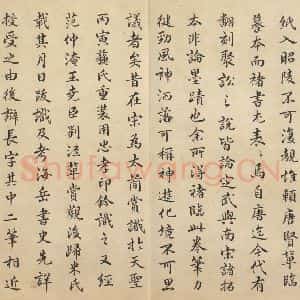 紙入昭陵不可復覩惟賴唐賢摹臨
摹本而褚書尤表〻焉自唐迄今代有
翻刻聚訟之說皆論定武與南宋諸拓
本非論墨蹟也余所得褚臨此卷筆力
健勁風神洒落可稱神遊化境不可思
議者矣昔在宋為太簡賞識於天聖
丙寅蘇氏重裝用忠孝印鈐識之又經
范仲淹王堯臣劉涇輩賞觀後歸米氏
載其月日跋識及老海岳書史完詳
授受之由後辯長字其中二筆相近
Shufawang.CN